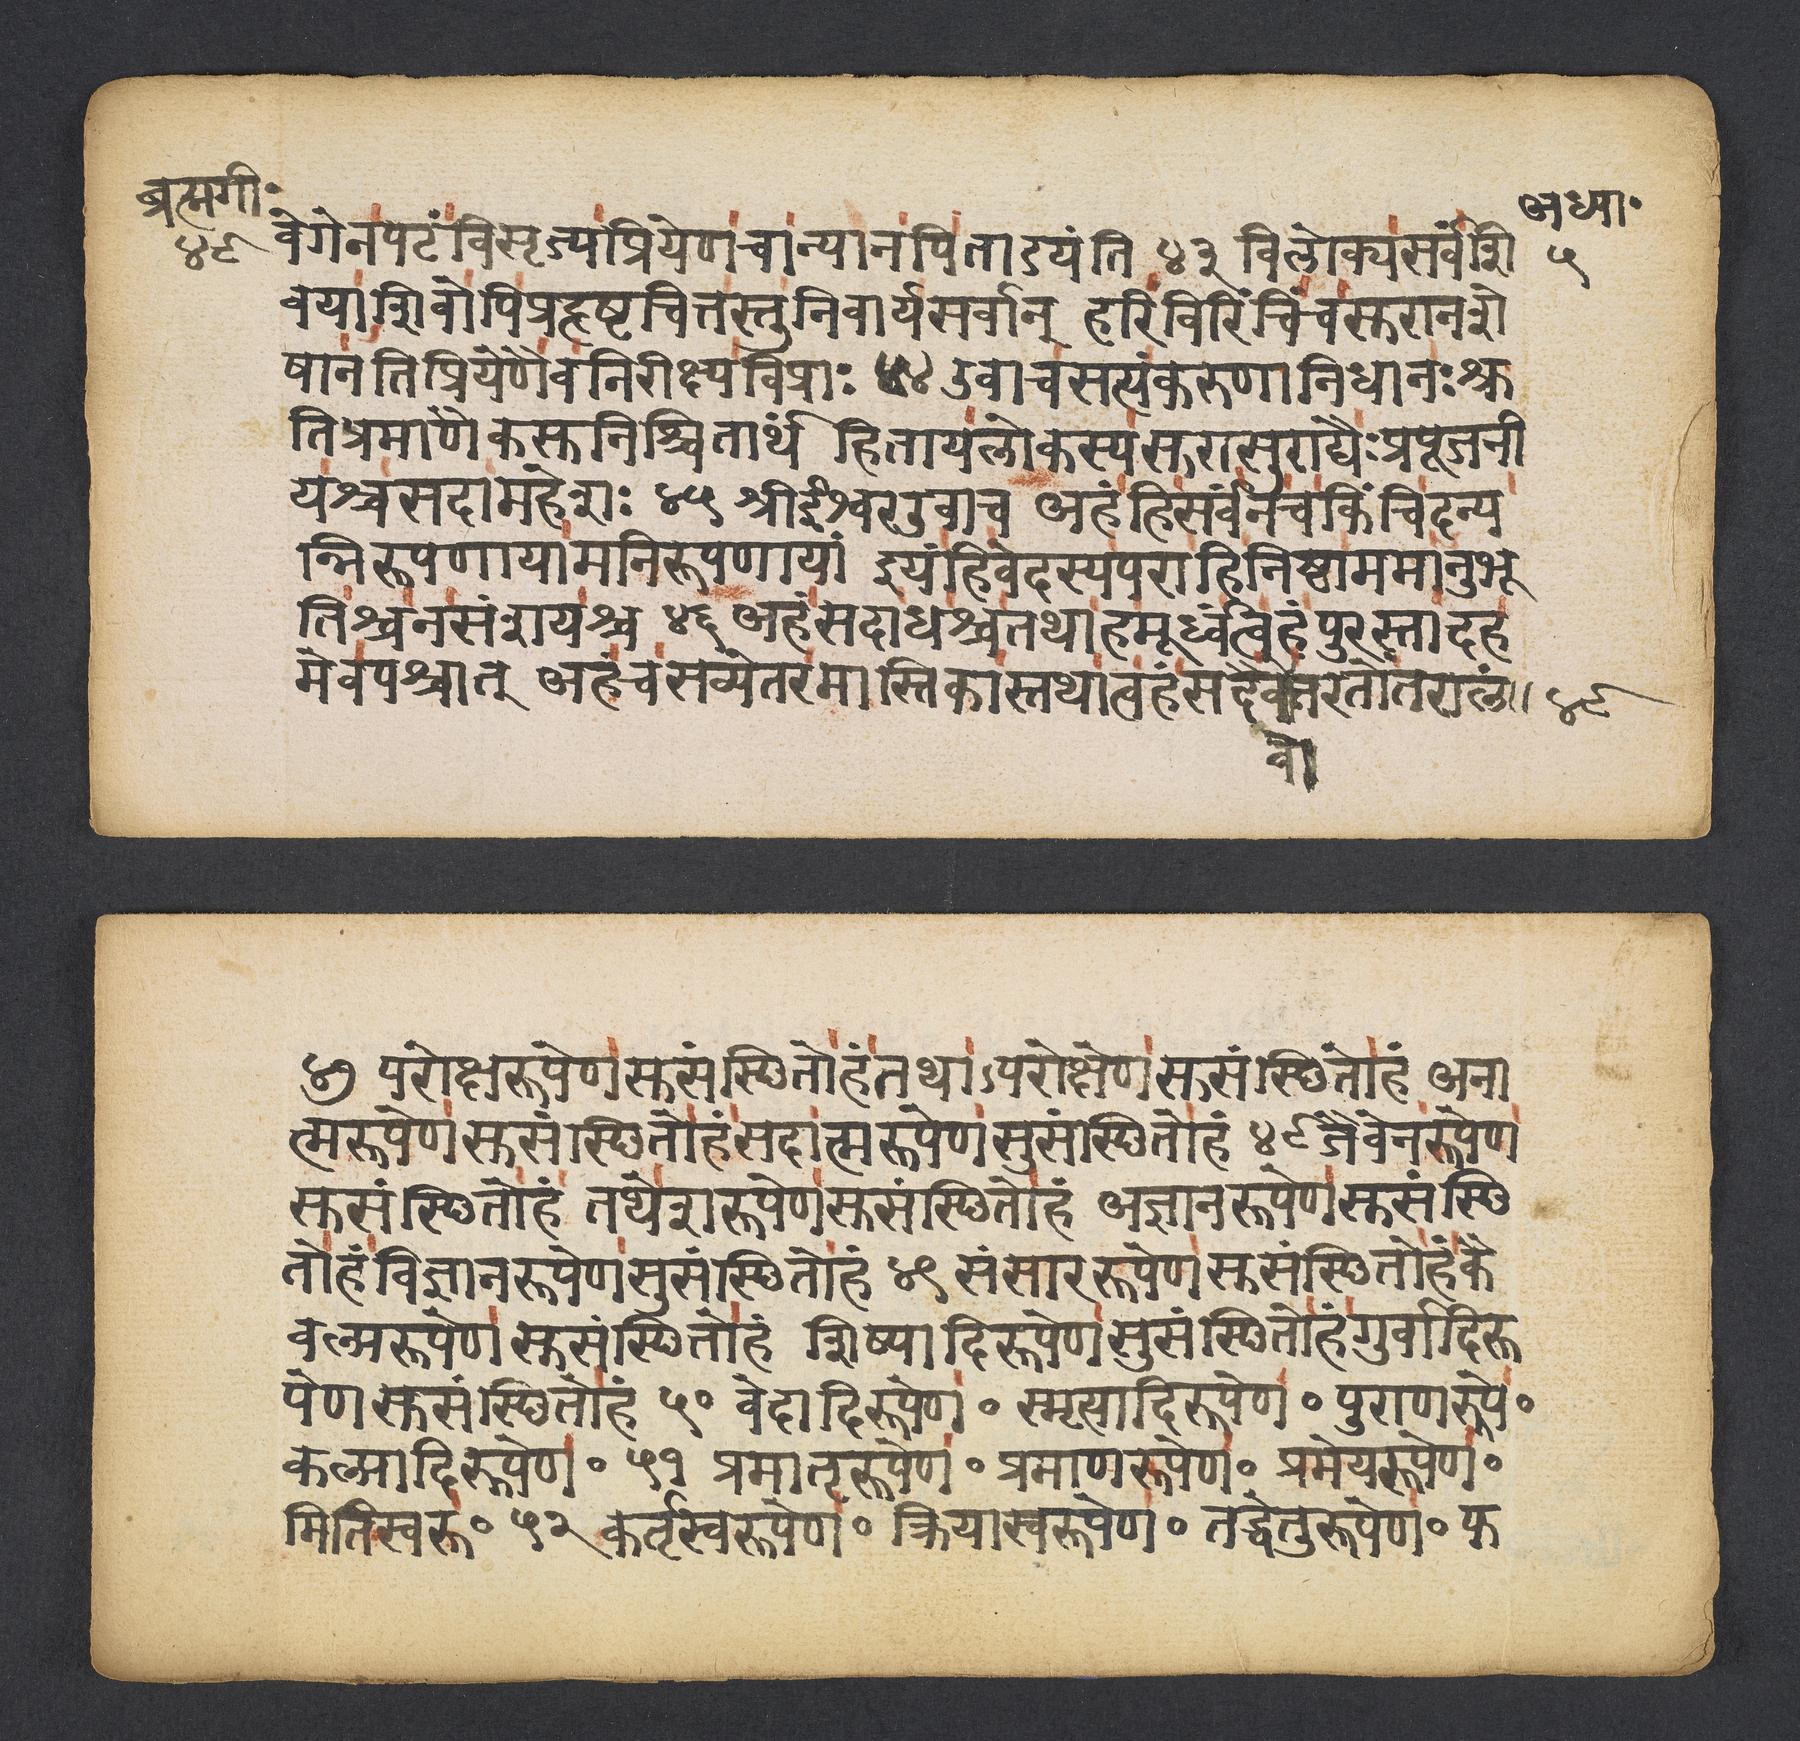 ब्रह्मगी॰
४८
अध्या॰
५
वेगेनपटंविसृज्यप्रियेणचान्यानपिताऽयंति ४३ विलोक्यसर्वंशि
वयाशिवोपिप्रहृष्टचित्तस्तुनिवार्यसर्वान् हरिंविरिंचिंचसुरानशे
षानतिप्रियेणैवनिरीक्ष्यविप्राः ४४ उवाचसत्यंकरुणानिधानःश्रु
तिप्रमाणैकसुनिश्चितार्थं हितायलोकस्यसुरासुराद्यैःप्रपूजनी
यश्चसदामहेशः ४५ श्रीईश्वरउवाच अहंहिसर्वंनचकिंचिदन्य
न्निरूपणायामनिरूपणायां इयंहिवेदस्यपराहिनिष्ठाममानुभू
तिश्चनसंशयश्च ४६ अहंसदाधश्चतथाहमूर्ध्वंत्वहंपुरस्तादह
मेवपश्चात् अहंचसव्येतरमास्तिकास्तथात्वहंसदैवोत्तरतोंतरालं॥ ४८
वो
४७ परोक्षरूपेणसुसंस्थितोहंतथाऽपरोक्षेणसुसंस्थितोहं अना
त्मरूपेणसुसंस्थितोहंसदात्मरूपेणसुसंस्थितोहं ४८ जैवेनरूपेण
सुसंस्थितोहं तथेशरूपेणसुसंस्थितोहं अज्ञानरूपेणसुसंस्थि
तोहंविज्ञानरूपेणसुसंस्थितोहं ४९ संसाररूपेणसुसंस्थितोहंकै
वल्यरूपेणसुसंस्थितोहं शिष्यादिरूपेणसुसंस्थितोहंगुर्वादिरू
पेणसुसंस्थितोहं ५॰ वेदादिरूपेण॰ स्मृत्यादिरूपेण॰ पुराणरूपे॰
कल्पादिरूपेण॰ ५१ प्रमातृरूपेण॰ प्रमाणरूपेण॰ प्रमेयरूपेण॰
मितिस्वरू॰ ५२ कर्तृस्वरूपेण॰ क्रियास्वरूपेण॰ तद्धेतुरूपेण॰ फ